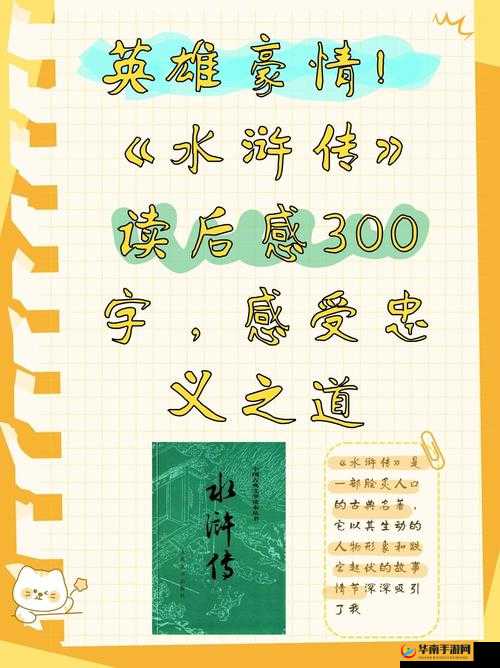 英雄豪情!
《水浒传》
读后感300
字，感受忠
义之道
水浒传
《水浒传》是
一部脍炙人口
的古典名著，
它以其生动的
人物形象和跌
宕起伏的故事
情节深深吸引
了我
华南手游网